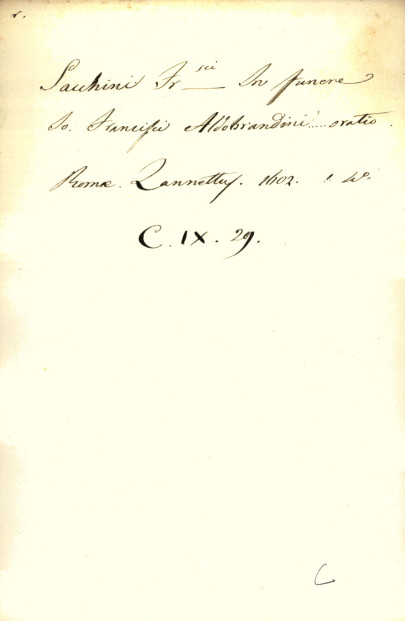 Sacchini Fr^sci In funere
Jo. Francisci Aldobrandini .... oratio.
Romæ. Zannettus. 1602. 4º.
C. IX. 29.
C